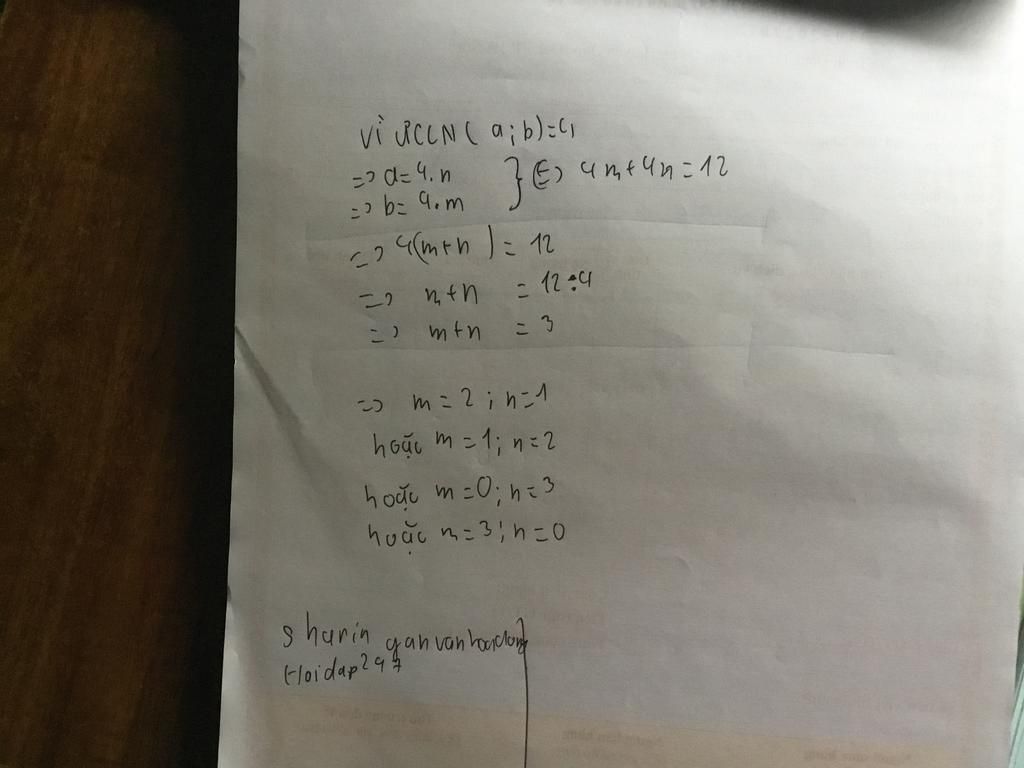 Vì ƯCLN( a;b)=4
=> a=4.n } => 4m+4n=12
=> b=4.m
=> 4(m+n) = 12
=> m+n = 12:4
=> m+n = 3
=> m=2; n=1
hoặc m=1; n=2
hoặc m=0; n=3
hoặc m=3; n=0
sharin ganvanhoadong
Hoidap247